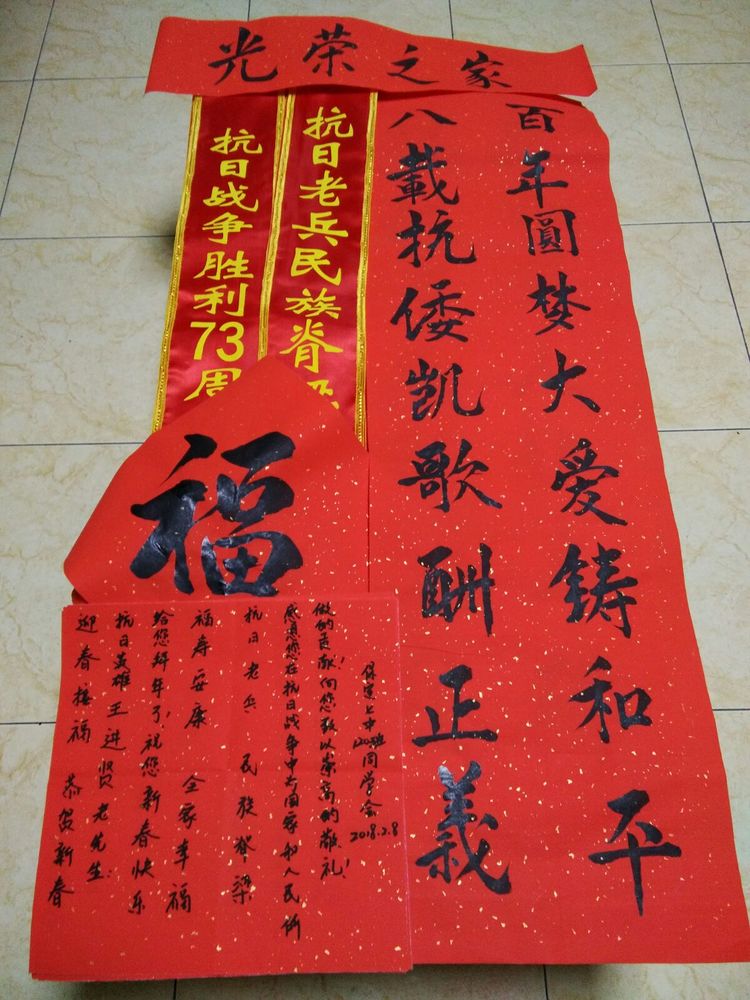 光荣之家
百年圓梦大爱铸和平
八載抗倭凯歌酬正義
抗日老兵民族脊
抗日战争胜利73周
福
迎春接福 恭贺新春
抗日英雄王进贤老先生:
给您拜年了,祝您新春快乐
福寿安康 全家幸福
抗日老兵 民族脊梁
感恩您在抗日战争中为国家和人民所
做的贡献!向您致以崇高的敬礼!
120班同学会
2018.2.8